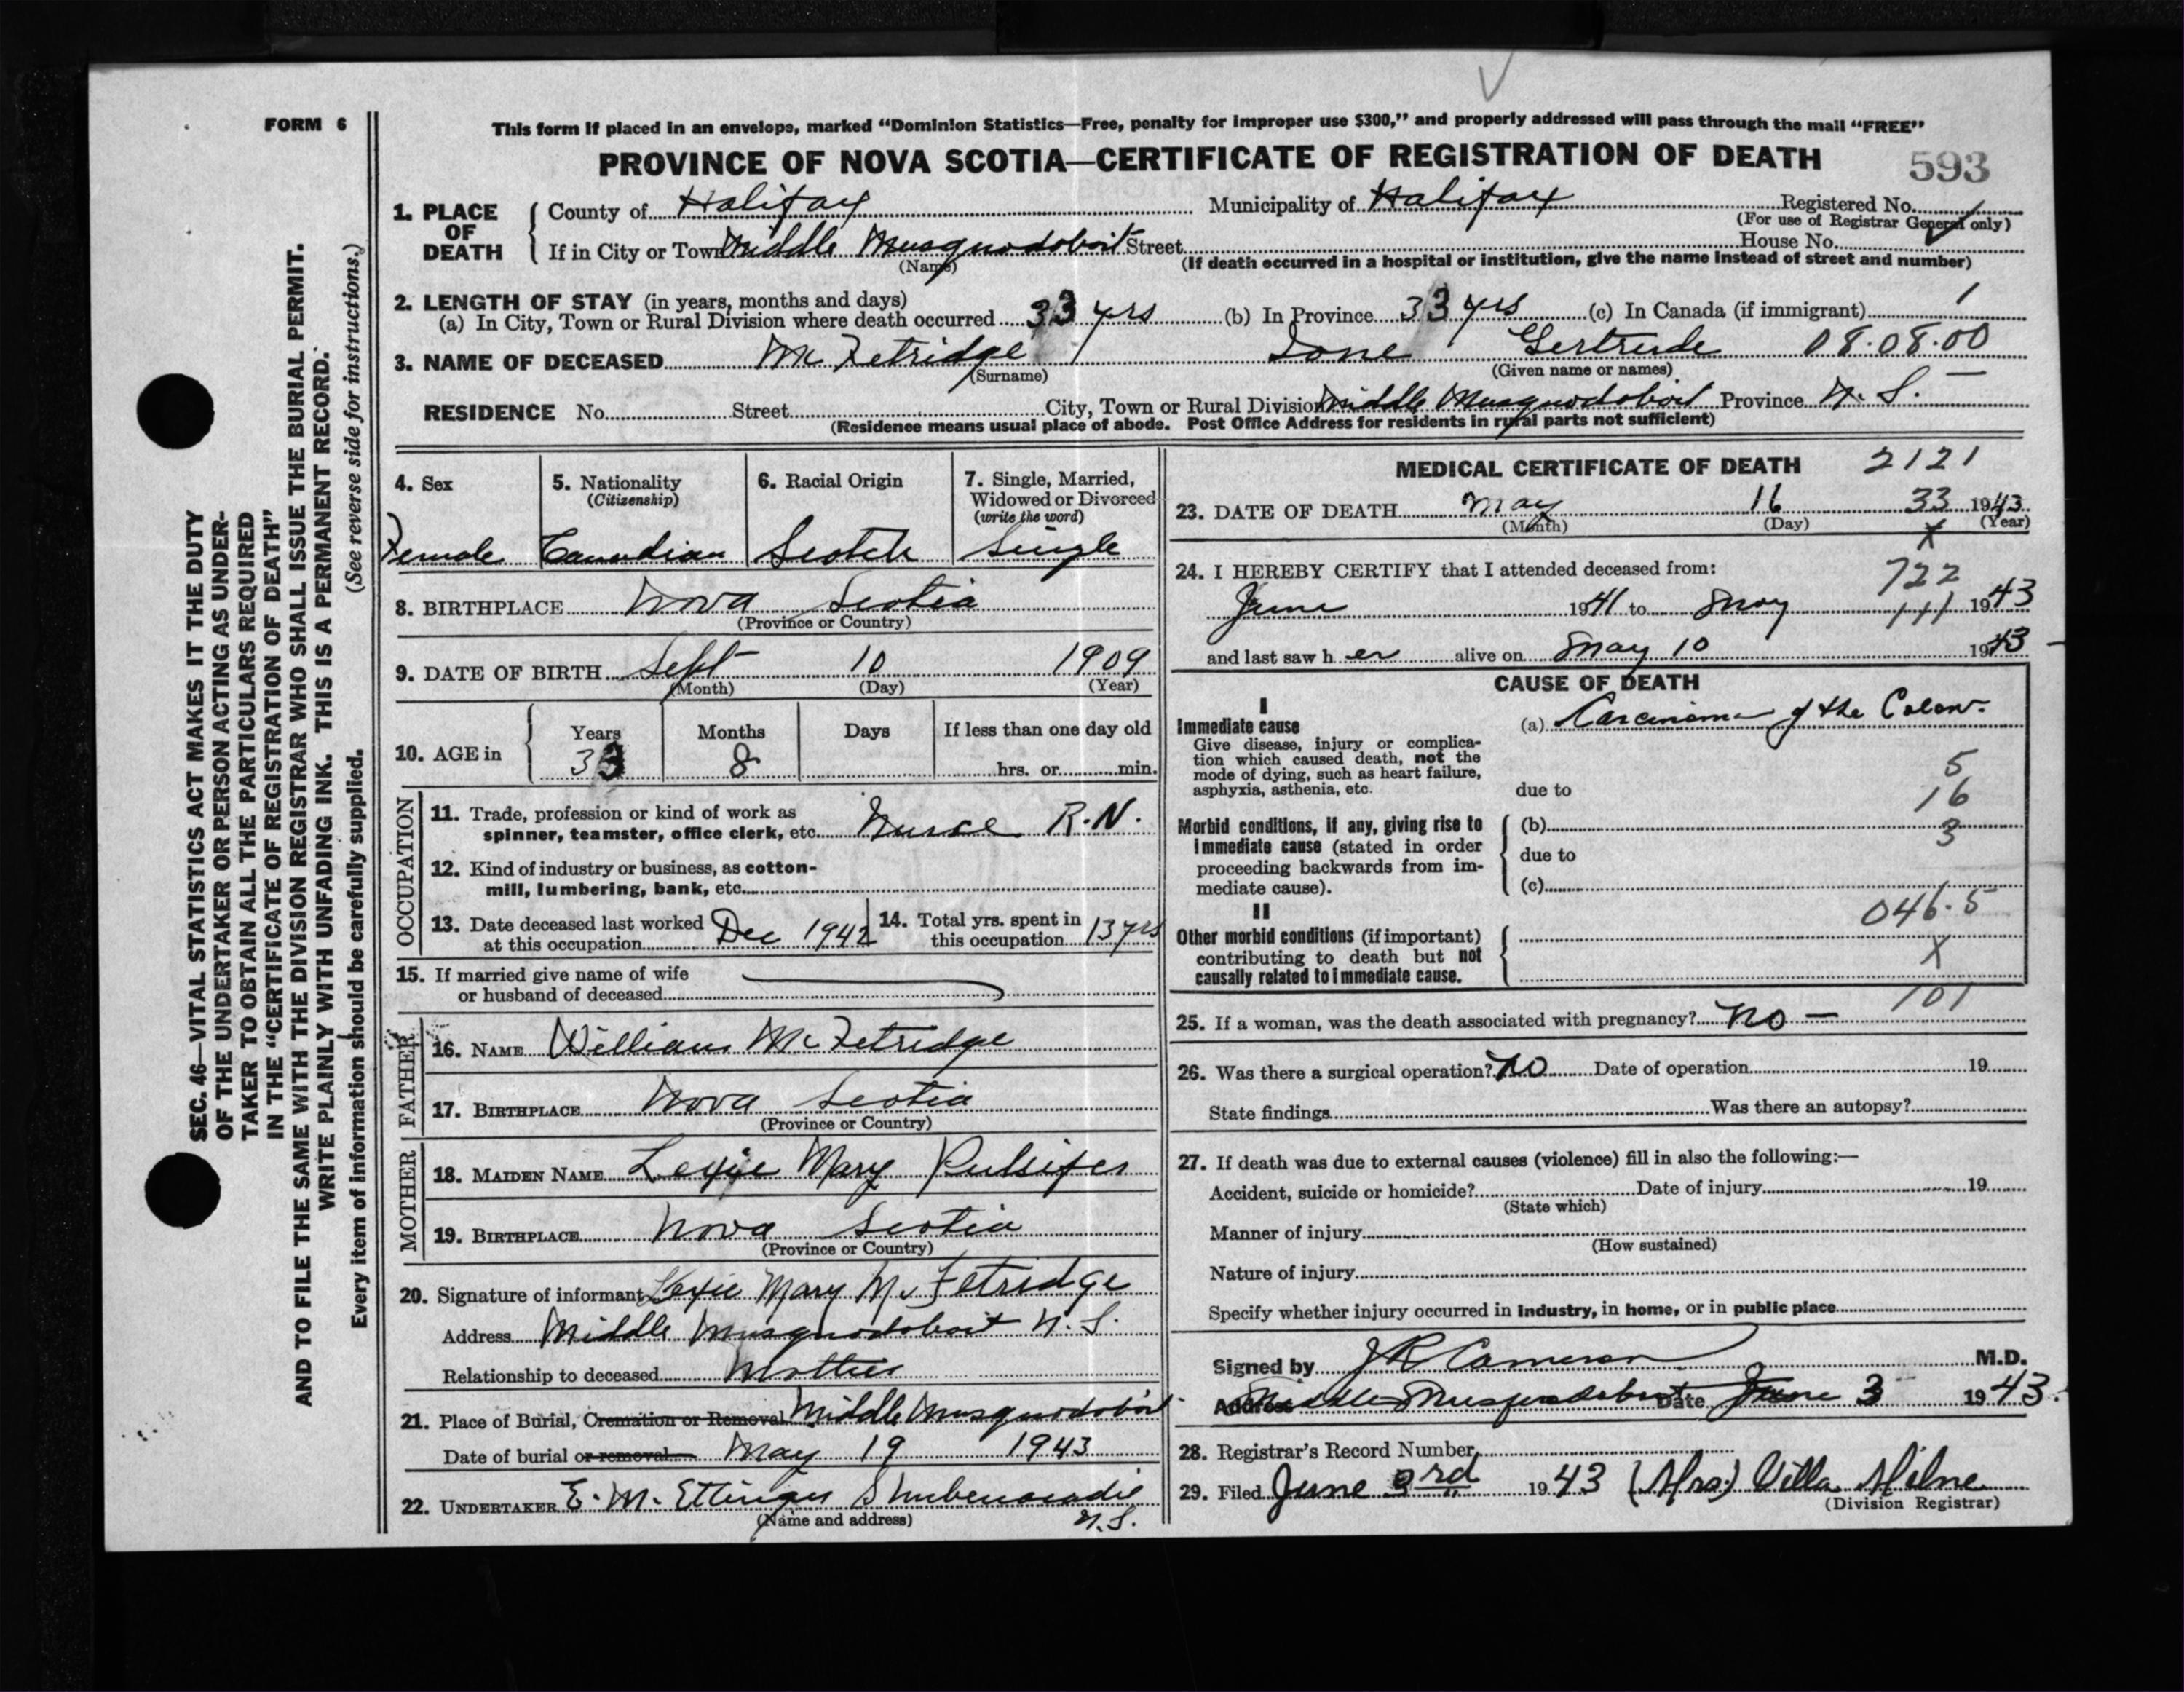 FORM 6
This form if placed in an envelope, marked "Dominion Statistics—Free, penalty for improper use $300," and properly addressed will pass through the mail "FREE"
PROVINCE OF NOVA SCOTIA—CERTIFICATE OF REGISTRATION OF DEATH
593
1. PLACE OF DEATH
County of Halifax Municipality of Halifax Registered No.
(For use of Registrar General only)
If in City or Town Middle Musquodoboit Street House No.
(Name) (If death occurred in a hospital or institution, give the name instead of street and number)
2. LENGTH OF STAY (in years, months and days)
(a) In City, Town or Rural Division where death occurred 33 yrs (b) In Province 33 yrs (c) In Canada (if immigrant)
3. NAME OF DECEASED McFetridge Ione Gertrude 08.08.00
(Surname) (Given name or names)
RESIDENCE No. Street City, Town or Rural Division Middle Musquodoboit Province N.S.
(Residence means usual place of abode. Post Office Address for residents in rural parts not sufficient)
4. Sex Female
5. Nationality (Citizenship) Canadian
6. Racial Origin Scotch
7. Single, Married, Widowed or Divorced (write the word) Single
8. BIRTHPLACE Nova Scotia
(Province or Country)
9. DATE OF BIRTH Sept 10 1909
(Month) (Day) (Year)
10. AGE in Years 33 Months 8 Days If less than one day old hrs. or min.
OCCUPATION
11. Trade, profession or kind of work as
spinner, teamster, office clerk, etc. Nurse R.N.
12. Kind of industry or business, as cotton-
mill, lumbering, bank, etc.
13. Date deceased last worked at this occupation Dec 1942
14. Total yrs. spent in this occupation 13 yrs
15. If married give name of wife
or husband of deceased
FATHER
16. NAME William McFetridge
17. BIRTHPLACE Nova Scotia
(Province or Country)
MOTHER
18. MAIDEN NAME Lexie Mary Pulsifer
19. BIRTHPLACE Nova Scotia
(Province or Country)
20. Signature of informant Lexie Mary McFetridge
Address Middle Musquodoboit N.S.
Relationship to deceased Mother
21. Place of Burial, Cremation or Removal Middle Musquodoboit
Date of burial or removal May 19 1943
22. UNDERTAKER E. M. Ettinger Shubenacadie
(Name and address) N.S.
MEDICAL CERTIFICATE OF DEATH 2121
23. DATE OF DEATH May 16 33 1943
(Month) (Day) X (Year)
24. I HEREBY CERTIFY that I attended deceased from: 722
June 1941 to May 111 1943
and last saw her alive on May 10 1943
CAUSE OF DEATH
I
Immediate cause
Give disease, injury or complica-
tion which caused death, not the
mode of dying, such as heart failure,
asphyxia, asthenia, etc.
(a) Carcinoma of the Colon.
5
due to
16
Morbid conditions, if any, giving rise to
immediate cause (stated in order
proceeding backwards from im-
mediate cause).
(b)
3
due to
(c)
II
046.5
Other morbid conditions (if important)
contributing to death but not
causally related to immediate cause.
X
101
25. If a woman, was the death associated with pregnancy? No —
26. Was there a surgical operation? No Date of operation 19
State findings Was there an autopsy?
27. If death was due to external causes (violence) fill in also the following:—
Accident, suicide or homicide? Date of injury 19
(State which)
Manner of injury
(How sustained)
Nature of injury
Specify whether injury occurred in industry, in home, or in public place
Signed by J R Cameron M.D.
Address Middle Musquodoboit Date June 3 1943.
28. Registrar's Record Number
29. Filed June 3rd 1943 (Mrs.) Villa Milne
(Division Registrar)
SEC. 46—VITAL STATISTICS ACT MAKES IT THE DUTY
OF THE UNDERTAKER OR PERSON ACTING AS UNDER-
TAKER TO OBTAIN ALL THE PARTICULARS REQUIRED
IN THE "CERTIFICATE OF REGISTRATION OF DEATH"
AND TO FILE THE SAME WITH THE DIVISION REGISTRAR WHO SHALL ISSUE THE BURIAL PERMIT.
WRITE PLAINLY WITH UNFADING INK. THIS IS A PERMANENT RECORD.
Every item of information should be carefully supplied. (See reverse side for instructions.)